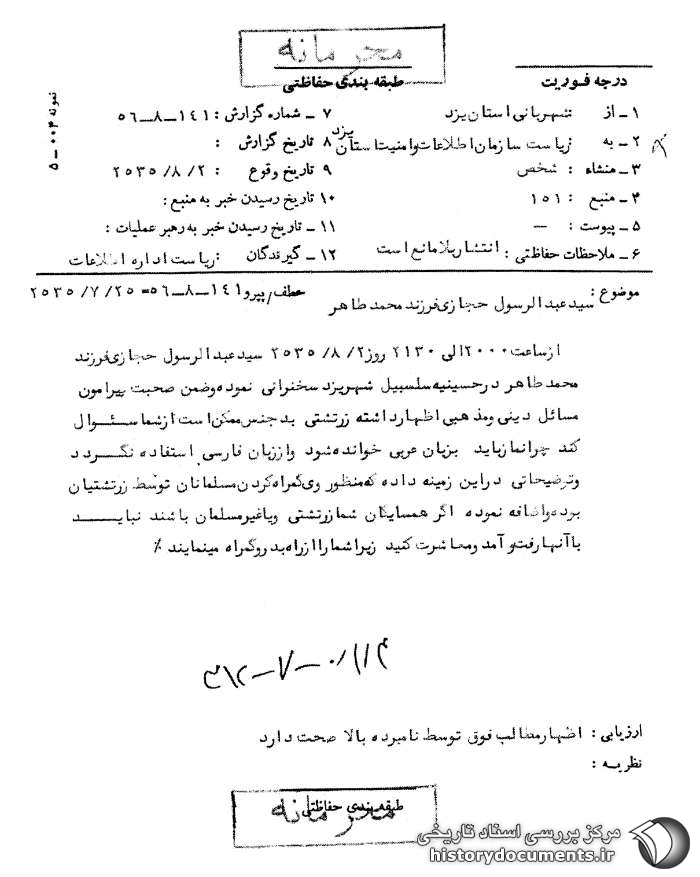 محرمانه
درجه فوریت
طبقه بندی حفاظتی
نمونه ۰۰۴ ـ ۵
۱ ـ از شهربانی استان یزد
۷ ـ شماره گزارش : ۱۴۱ ـ ۸ ـ ۵۶
۲ ـ به ریاست سازمان اطلاعات وامنیت استان یزد
۸ تاریخ گزارش :
۳ ـ منشاء : شخص
۹ تاریخ وقوع : ۲ /۸/ ۲۵۳۵
۴ ـ منبع : ۱۵۱
۱۰ تاریخ رسیدن خبر به منبع :
۵ ـ پیوست : —
۱۱ ـ تاریخ رسیدن خبر به رهبر عملیات :
۶ ـ ملاحظات حفاظتی : انتشاربلامانع است
۱۲ ـ گیرندگان : ریاست اداره اطلاعات
موضوع : سیدعبدالرسول حجازی فرزند محمد طاهر
عطف/پیرو ۱۴۱ ـ ۸ ـ ۵۶ = ۲۵ /۷/ ۲۵۳۵
ازساعت ۲۰۰۰ الی ۲۱۳۰ روز ۲ /۸/ ۲۵۳۵ سیدعبدالرسول حجازی فرزند
محمدطاهر درحسینیه سلسبیل شهریزد سخنرانی نموده وضمن صحبت پیرامون
مسائل دینی ومذهبی اظهارداشته زرتشتی بدجنس ممکن است ازشما سئـوال
کند چرانمازباید بزبان عربی خوانده شود واززبان فارسی استفاده نگـردد
وتوضیحاتی دراین زمینه داده که منظور وی گمراه کردن مسلمانان توسط زرتشتیان
بوده واضافه نموده اگر همسایگان شمازرتشتی ویاغیرمسلمان باشند نبایـد
باآنهارفت و آمد ومعاشرت کنید زیراشماراازراه بدر وگمراه مینمایند ٪
ارزیابی : اظهارمطالب فوق توسط نامبرده بالا صحت دارد
نظریه :
طبقه بندی حفاظتی
محرمانه
مرکز بررسی اسناد تاریخی
historydocuments.ir